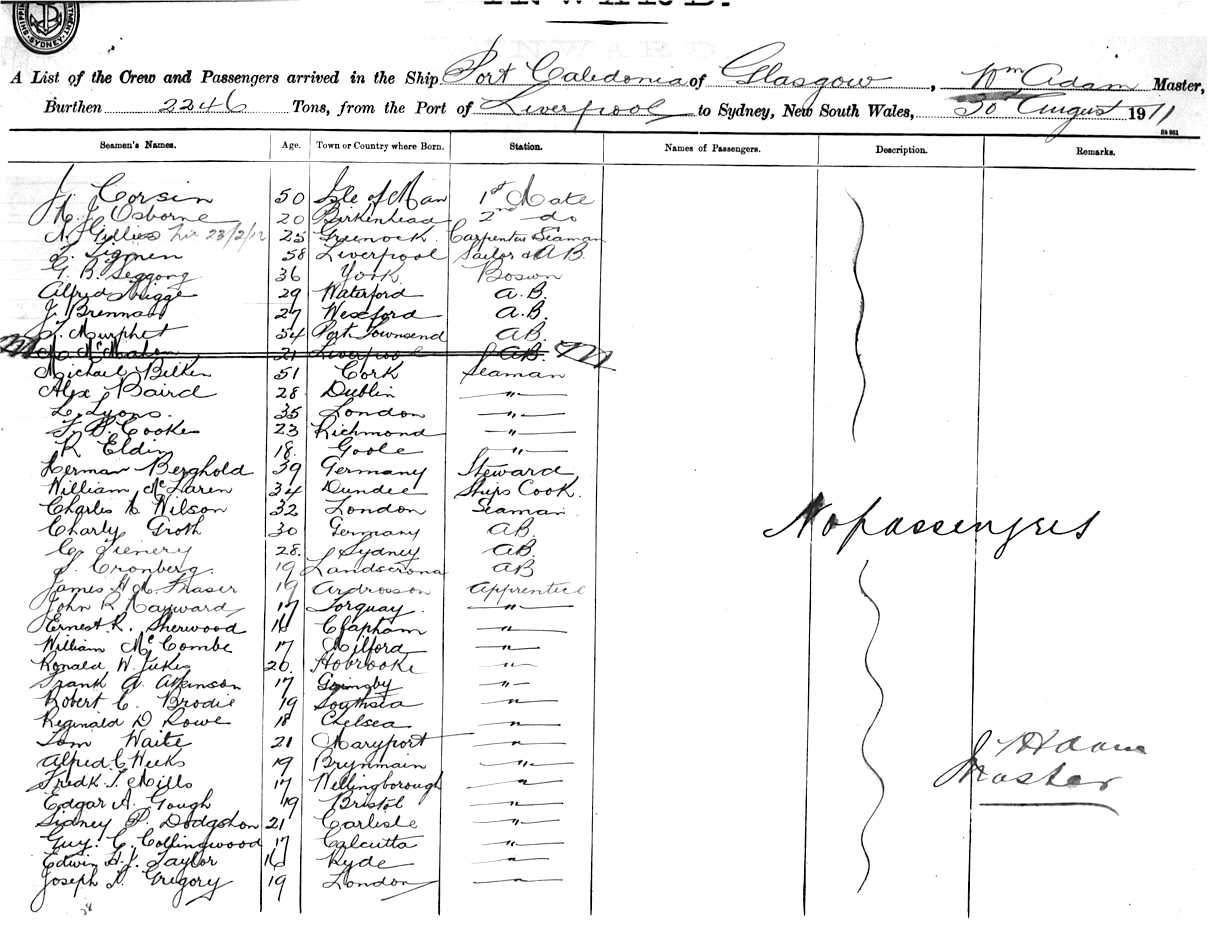 INWARD.
A List of the Crew and Passengers arrived in the Ship Port Caledonia of Glasgow, Wm Adam Master,
Burthen 2246 Tons, from the Port of Liverpool to Sydney, New South Wales, 30 August 1911
Seamen's Names. Age. Town or Country where Born. Station. Names of Passengers. Description. Remarks.
J. Corsin 50 Isle of Man 1st Mate
Osborne 20 Birkenhead 2nd do
Gillies 23/2/12 25 Greenock Carpenter Seaman
58 Liverpool Sailor & A B.
G. B. Seggong 36 York Bosun
Alfred 29 Waterford A.B.
J. Brennan 27 Wexford A.B.
Murphet 54 Port Townsend AB.
McMahon 21 Liverpool AB.
Michael 51 Cork Seaman
Alex Baird 28 Dublin "
L. Lyons. 35 London "
Cooke 23 Richmond "
R Eldin 18. Goole "
Herman Berghold 39 Germany Steward
William McLaren 34 Dundee Ships Cook.
Charles Wilson 32 London Seaman
Charly Groth 30 Germany AB.
28. Sydney AB.
Cronberg. 19 Landscrona AB
James Fraser 19 Ardrossan Apprentice
John R Hayward 17 Torquay. "
Ernest R. Sherwood 16 Clapham "
William McCombe 17 Milford "
Ronald W. Jukes 20. Holbrooke "
Frank A. Atkinson 17 Grimsby "
Robert C. Brodie 19 Southsea "
Reginald D Rowe 18 Chelsea "
Tom Waite 21 Maryport "
Alfred C Weeks 19 Brynmain "
Fredk T. Mills 17 Wellingborough "
Edgar A. Gough 19 Bristol "
Sidney P. Dodgshon 21 Carlisle "
Guy. C. Collingwood 17 Calcutta "
Edwin H. J. Taylor 16 Ryde "
Joseph Gregory 19 London "
No passengres
J Adam
Master